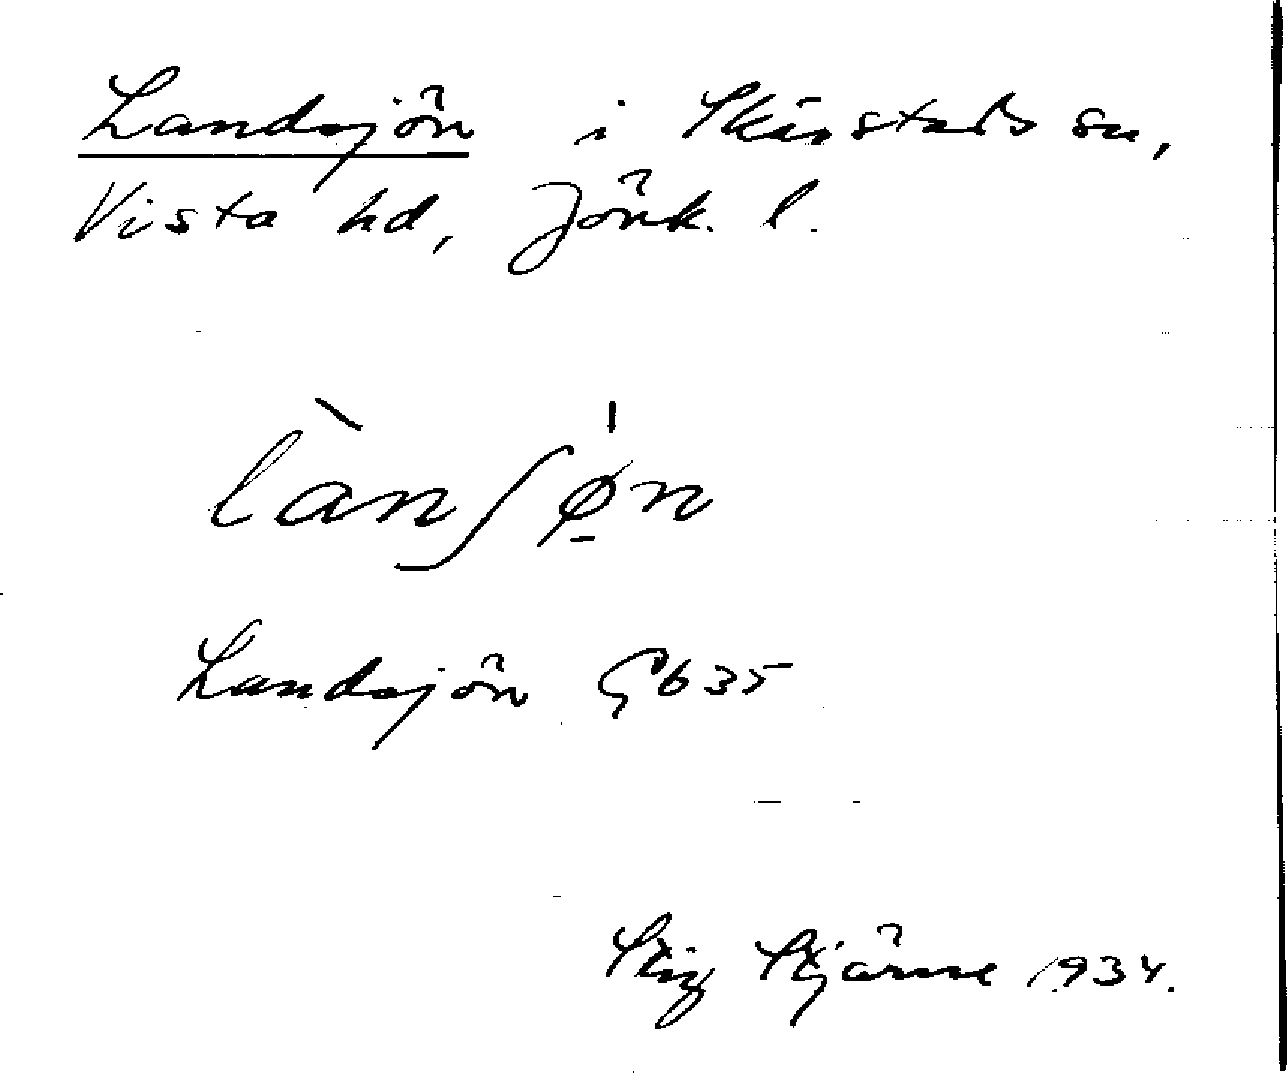 Landsjön i Skärstads sn,
Vista hd, Jönk. l.
lànʃø̠n
Landsjön G635
Stig Stjärne 1934.